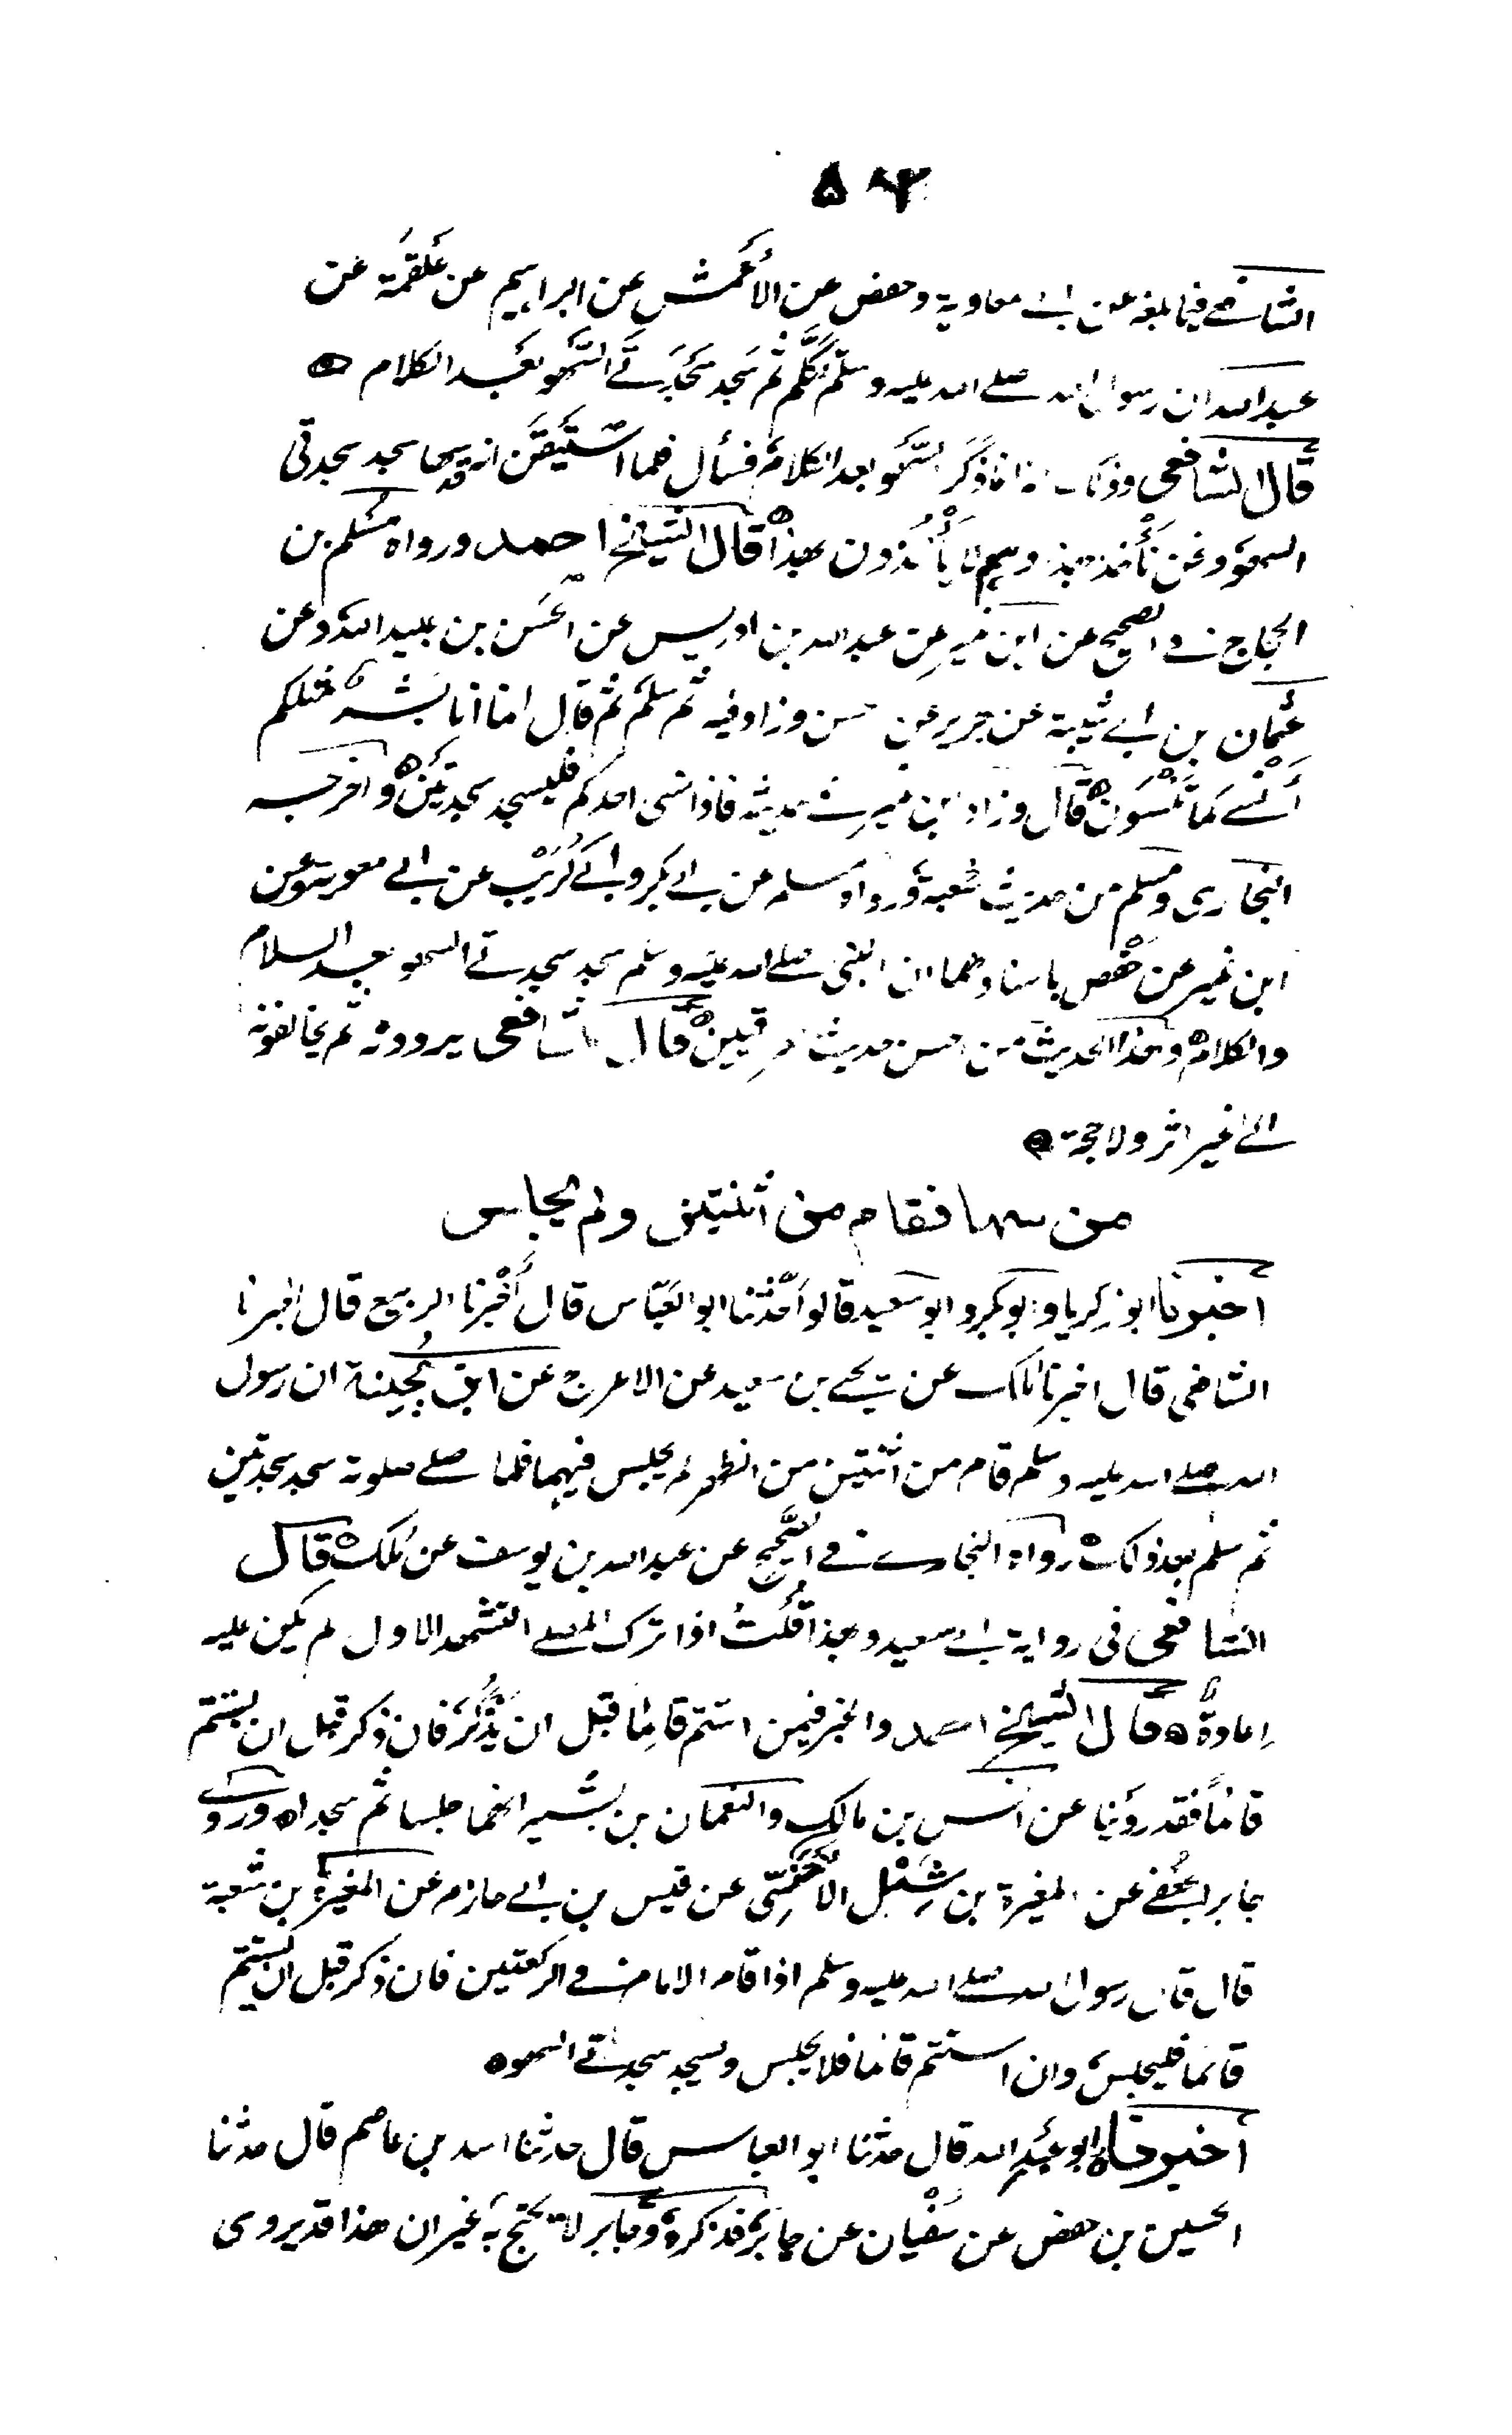 ٥٨٣
الشافعي فيما بلغه عن ابي معاوية وحفص عن الأعمش عن ابراهيم عن علقمة عن
عبد الله ان رسول الله صلى الله عليه وسلم تكلم ثم سجد سجدتي السهو بعد الكلام ه
قال الشافعي وذلك انه انما ذكر السهو بعد الكلام فسأل فلما استيقن انه قد سها سجد سجدتي
السهو ونحن نأخذ بهذا وهم لا يأخذون بهذا ه قال الشيخ احمد ورواه مسلم بن
الحجاج في الصحيح عن ابن نمير عن عبد الله بن ادريس عن الحسن بن عبيد الله وعن
عثمان بن ابي شيبة عن جرير عن حسن وزاد فيه ثم سلم ثم قال انما انا بشر مثلكم
أنسى كما تنسون ه قال وزاد ابن نمير في حديثه فاذا نسى احدكم فليسجد سجدتين ه واخرجه
البخاري ومسلم من حديث شعبة ورواه مسلم عن ابي بكر وابي كريب عن ابي معوية وعن
ابن نمير عن حفص باسنادهما ان النبي صلى الله عليه وسلم سجد سجدتي السهو بعد السلام
والكلام ه وهذا الحديث من حسن حديث قيين ه قال الشافعي يروونه ثم يخالفونه
الى غير اثر ولا حجة ه
من سها فقام من اثنتين ولم يجلس
أخبرنا ابو زكريا وابو بكر وابو سعيد قالوا حدثنا ابو العباس قال أخبرنا الربيع قال اخبرنا
الشافعي قال اخبرنا ملك عن يحيى بن سعيد عن الاعرج عن ابن بحينة ان رسول
الله صلى الله عليه وسلم قام من اثنتين من الظهر لم يجلس فيهما فلما صلى صلوته سجد سجدتين
ثم سلم بعد ذلك ه رواه البخاري في الصحيح عن عبد الله بن يوسف عن ملك ه قال
الشافعي في رواية ابي سعيد وبهذا قلت اذا ترك المصلي التشهد الاول لم يكن عليه
اعادة ه قال الشيخ احمد والخبر فيمن استتم قائما قبل ان يذكر فان ذكر قبل ان يستتم
قائما فقد روينا عن انس بن مالك والنعمان بن بشير انهما جلسا ثم سجدا ه وروى
جابر الجعفي عن المغيرة بن شبيل الأحمسي عن قيس بن ابي حازم عن المغيرة بن شعبة
قال قال رسول الله صلى الله عليه وسلم اذا قام الامام في الركعتين فان ذكر قبل ان يستتم
قائما فليجلس وان استتم قائما فلا يجلس ويسجد سجدتي السهو ه
أخبرناه ابو عبد الله قال حدثنا ابو العباس قال حدثنا اسد بن عاصم قال حدثنا
الحسين بن حفص عن سفيان عن جابر فذكره ه وجابر لا يحتج به غير ان هذا قد يروى